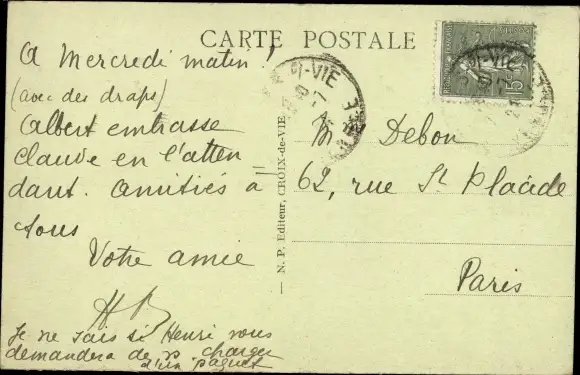 CARTE POSTALE
A Mercredi matin !
(avec des draps)
Albert embrasse
Claude en l'atten
dant. Amitiés à
tous
Votre amie
HB
Je ne sais si Henri vous
demandera de v. charger
d'un paquet
N. P. Editeur, CROIX-de-VIE
M Debou
62, rue St Placide
Paris
-VIE
15